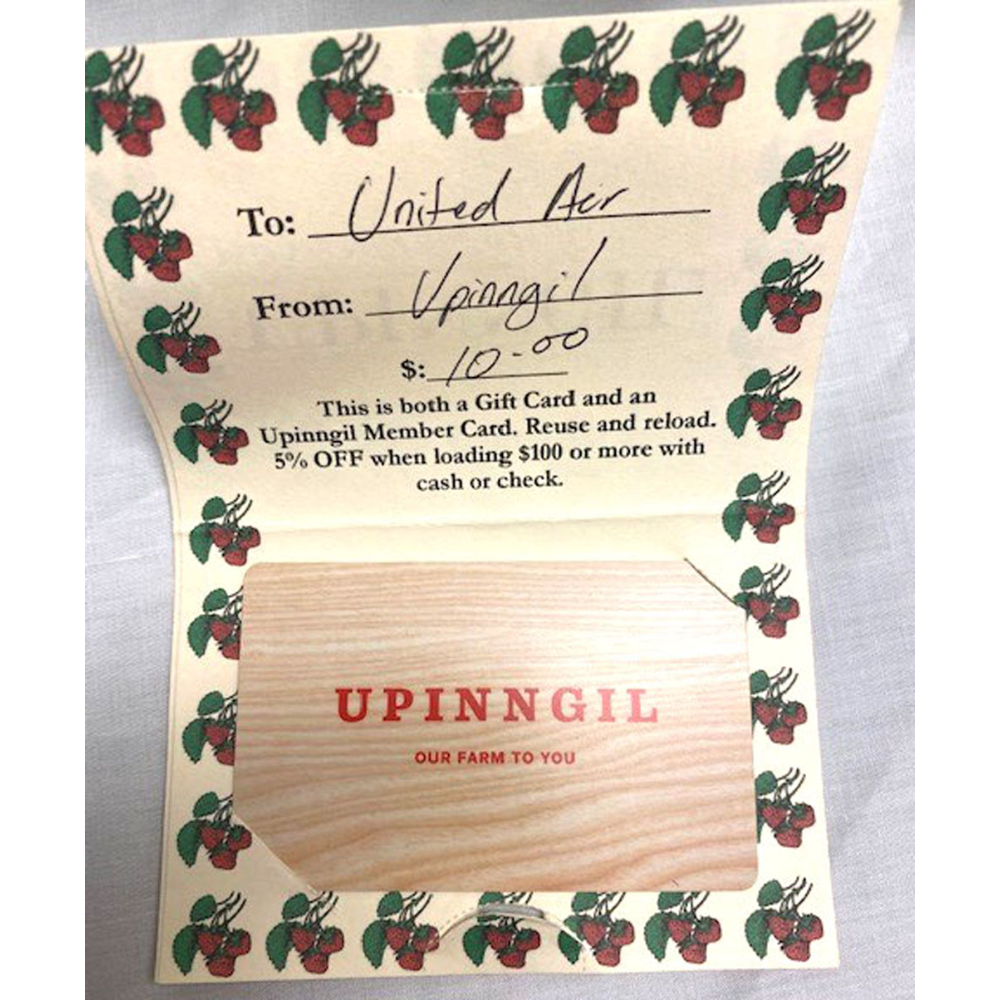 To: United Acr
From: Upinngil
$: 10-00
This is both a Gift Card and an
Upinngil Member Card. Reuse and reload.
5% OFF when loading $100 or more with
cash or check.
UPINNGIL
OUR FARM TO YOU